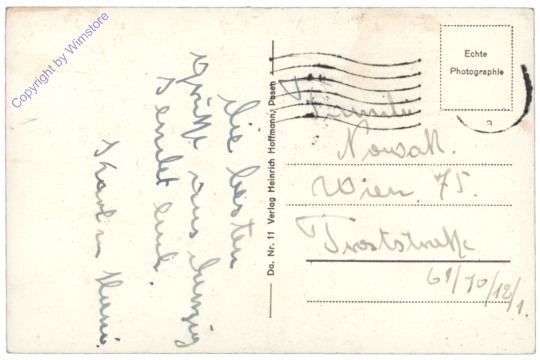 Copyright by Wimstore
Die besten
Grüße aus Danzig
sendet Euch
Karl u Mimi.
Da. Nr. 11 Verlag Heinrich Hoffmann, Posen
Echte
Photographie
Familie
Nowak.
Wien 75.
Troststraße
68/70/12/1.